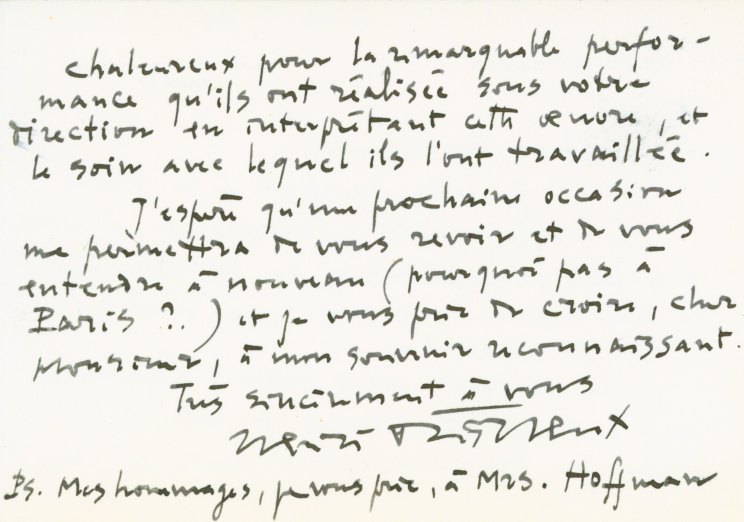 chaleureux pour la remarquable perfor-
mance qu'ils ont réalisée sous votre
direction en interprétant cette œuvre, et
le soin avec lequel ils l'ont travaillée.
J'espère qu'une prochaine occasion
me permettra de vous revoir et de vous
entendre à nouveau (pourquoi pas à
Paris ?..) et je vous prie de croire, cher
Monsieur, à mon souvenir reconnaissant.
Très sincèrement à vous
Henri Dutilleux
Ps. Mes hommages, je vous prie, à Mrs. Hoffman